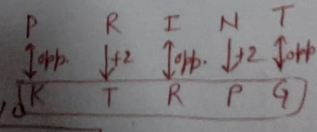 P R I N T
opp. +2 opp. +2 opp
K T R P G